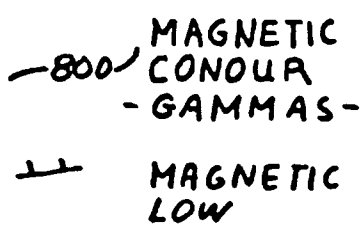 MAGNETIC
800 CONOUR
- GAMMAS -
MAGNETIC
LOW